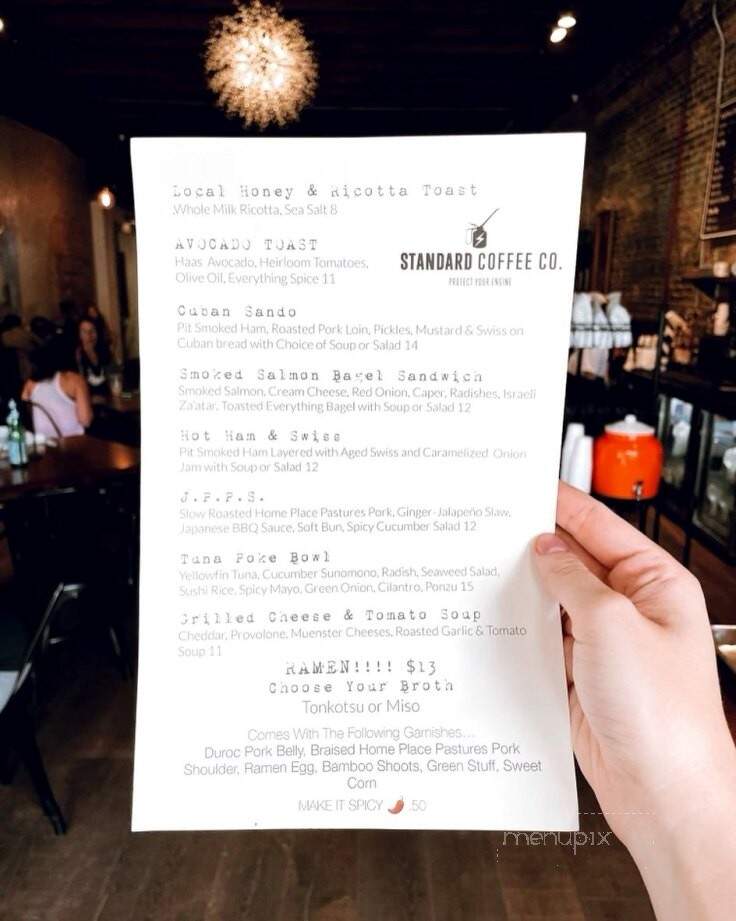 Local Honey & Ricotta Toast
Whole Milk Ricotta, Sea Salt 8
AVOCADO TOAST
Haas Avocado, Heirloom Tomatoes,
Olive Oil, Everything Spice 11
STANDARD COFFEE CO.
PROTECT YOUR ENGINE
Cuban Sando
Pit Smoked Ham, Roasted Pork Loin, Pickles, Mustard & Swiss on
Cuban bread with Choice of Soup or Salad 14
Smoked Salmon Bagel Sandwich
Smoked Salmon, Cream Cheese, Red Onion, Caper, Radishes, Israeli
Za'atar, Toasted Everything Bagel with Soup or Salad 12
Hot Ham & Swiss
Pit Smoked Ham Layered with Aged Swiss and Caramelized Onion
Jam with Soup or Salad 12
J.P.P.S.
Slow Roasted Home Place Pastures Pork, Ginger-Jalapeño Slaw,
Japanese BBQ Sauce, Soft Bun, Spicy Cucumber Salad 12
Tuna Poke Bowl
Yellowfin Tuna, Cucumber Sunomono, Radish, Seaweed Salad,
Sushi Rice, Spicy Mayo, Green Onion, Cilantro, Ponzu 15
Grilled Cheese & Tomato Soup
Cheddar, Provolone, Muenster Cheeses, Roasted Garlic & Tomato
Soup 11
RAMEN!!!! $13
Choose Your Broth
Tonkotsu or Miso
Comes With The Following Garnishes...
Duroc Pork Belly, Braised Home Place Pastures Pork
Shoulder, Ramen Egg, Bamboo Shoots, Green Stuff, Sweet
Corn
MAKE IT SPICY 🌶 .50
menupix